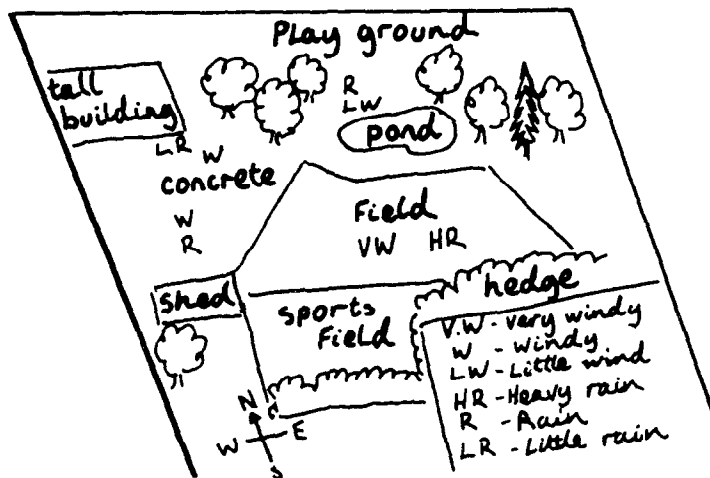 Play ground
tall
building
R
LW
pond
LR W
concrete
W
R
Field
VW HR
shed
sports
Field
hedge
V.W - very windy
W - Windy
LW - Little wind
HR - Heavy rain
R - Rain
LR - Little rain
N
W E
S